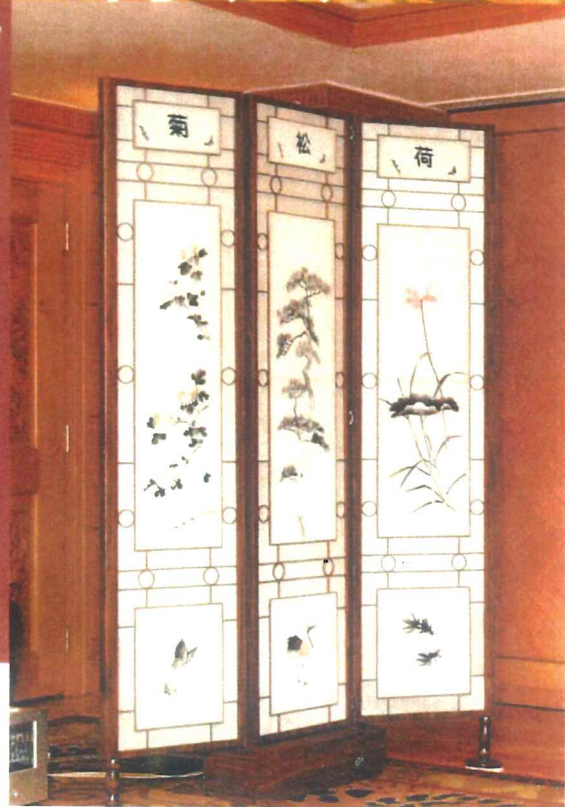 菊
松
荷